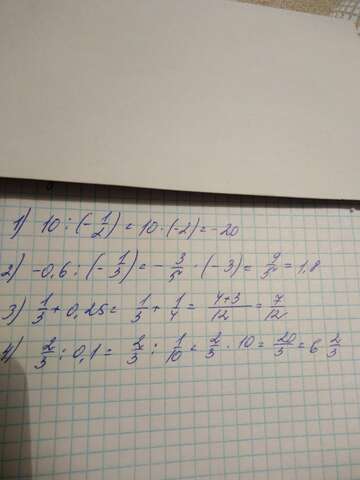 1) 10 : (-1/2) = 10 · (-2) = -20
2) -0,6 : (-1/3) = -3/5 · (-3) = 9/5 = 1,8
3) 1/3 + 0,25 = 1/3 + 1/4 = 4+3/12 = 7/12
4) 2/3 : 0,1 = 2/3 : 1/10 = 2/3 · 10 = 20/3 = 6 2/3